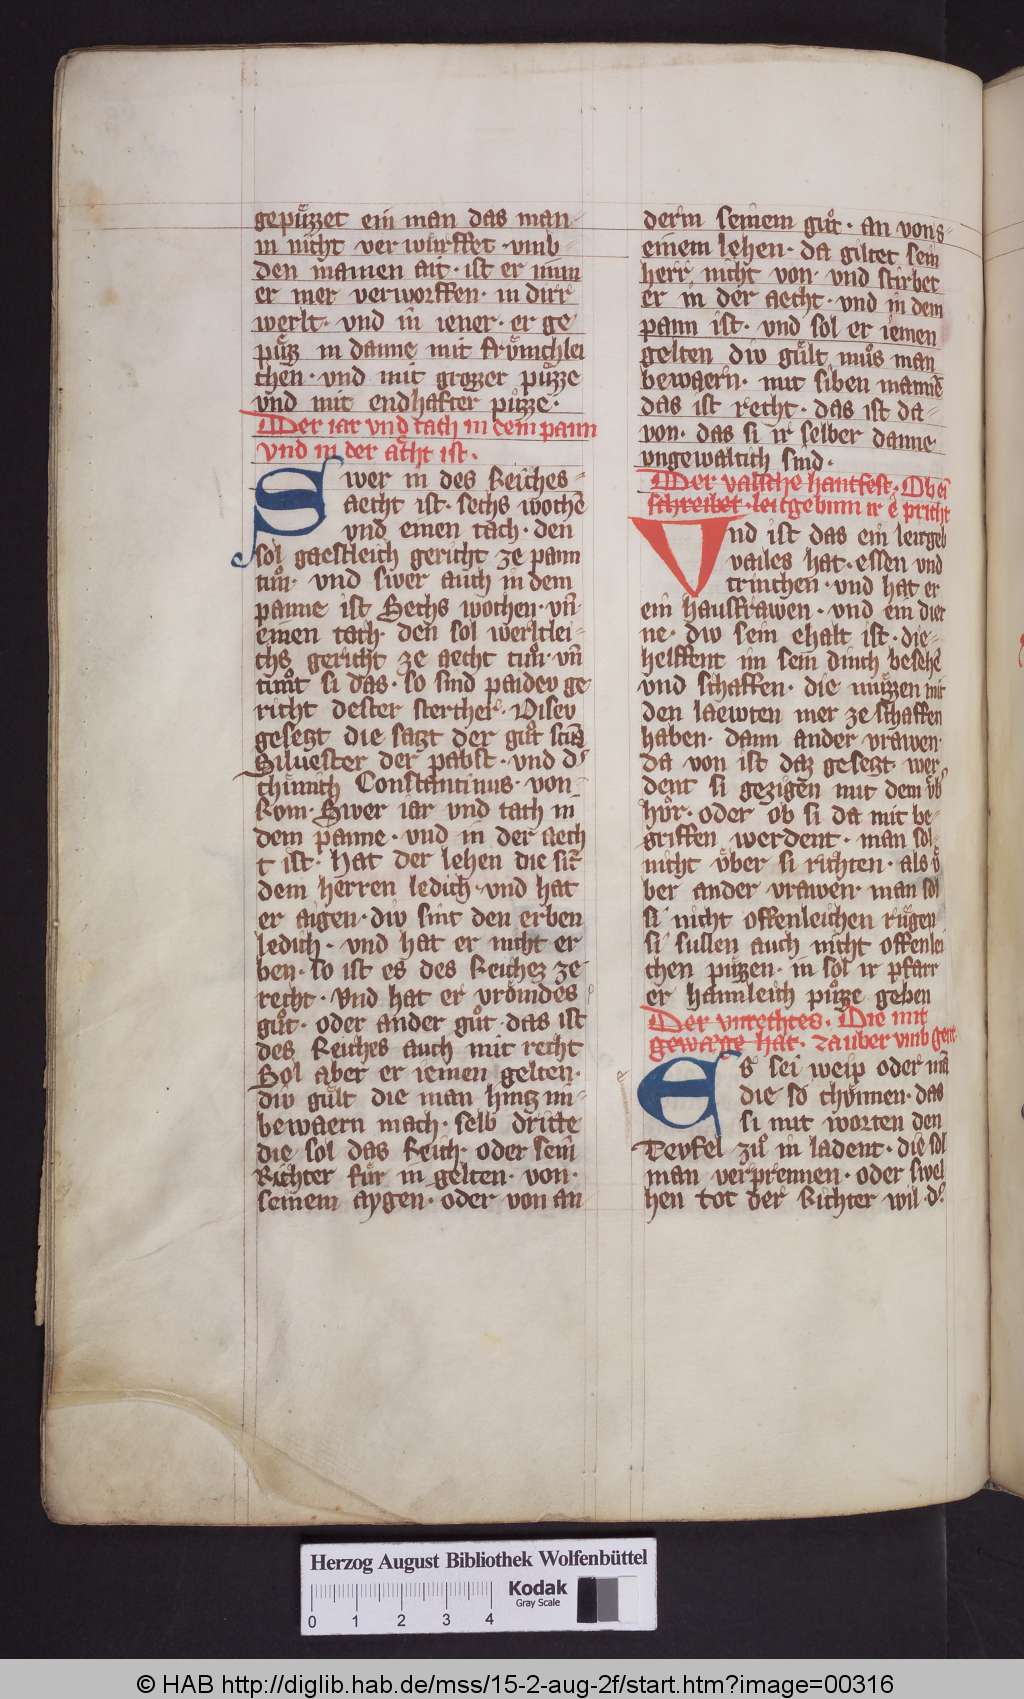 gepuͤzzet ein man das man-
in nicht verwurffet · vmb-
den mainen ait · ist er nun
er mer verworffen · in dirr
werlt · vnd in iener · er ge
puͤzz in danne mit fraͤmchlei
chen · vnd mit grozzer puͤzze
vnd mit endhafter puͤzze ·
Der iar vnd tach in dem pann
vnd in der aͤcht ist ·
Swer in des Reiches-
aecht ist · sechs wochē
vnd einen tach · den
sol gaestleich gericht ze pann
tuͦn · vnd swer auch in dem
panne ist Sechs wochen · vn̄
einen tach · den sol werltlei-
chs gericht ze aecht tuͦn · vn̄
tuͦnt si das · so sind paideu ge
richt dester stercher · Diseu
gesetzt die satzt der guͦt sand
Siluester der pabst · vnd d's
chuͤnich Constantinus · von
Rom · Swer iar vnd tach in
dem panne · vnd in der aech
t ist · hat der lehen die sint
dem herren ledich · vnd hat
er aigen · diw sint den erben
ledich · vnd hat er nicht er
ben · so ist es des Reichez ze
recht · Vnd hat er vroͤmdes
guͦt · oder ander guͦt · das ist
des Reiches auch mit recht
Sol aber er iemen gelten ·
diw guͤlt die man hintz im-
bewaern mach · selb dritte
die sol das Reich · oder sein
Richter fuͤr in gelten · von ·
seinem aygen · oder von an
derm seinem guͦt · an von s-
einem lehen · da giltet sein
herr nicht von · vnd stirbet
er in der aecht · vnd in dem
pann ist · vnd sol er iemen
gelten diw guͤlt muͦs man
bewaern · mit siben mannē
das ist recht · das ist da-
von · das si ir selber danne
vngewaltich sind ·
Der valsche hantfest · Ob ein
schreibet · leitgebinn ir e pricht
Vnd ist das ein leitgeb
vailes hat · essen vnd
trinchen · vnd hat er
ein hausfrawen · vnd ein dier
ne · diw sein ehalt ist · die-
helffent im sein dinch besehē
vnd schaffen · die muͤzzen mit
den laewten mer ze schaffen
haben · dann ander vrawen ·
da von ist daz gesetzt wer
dent si gezigen mit dem vͤb
huͦr · oder ob si da mit be-
griffen werdent · man sol-
nicht vͤber si richten · als vͤ
ber ander vrawen · man sol
si nicht offenleichen ruͤgen
si sullen auch nicht offenlei
chen puͤzzen · in sol ir pfarr
er haimleich puͦzze geben
Der vnrechtes · Die mit
gewaͤge hat · zauber vmb gent
Es sei weip oder man
die so choͤnnen · das
si mit worten den
Teyfel zuͦ in ladent · die sol
man verprennen · oder swel
hen tot der Richter wil · d's
Herzog August Bibliothek Wolfenbüttel
Kodak
Gray Scale
0 1 2 3 4
© HAB http://diglib.hab.de/mss/15-2-aug-2f/start.htm?image=00316